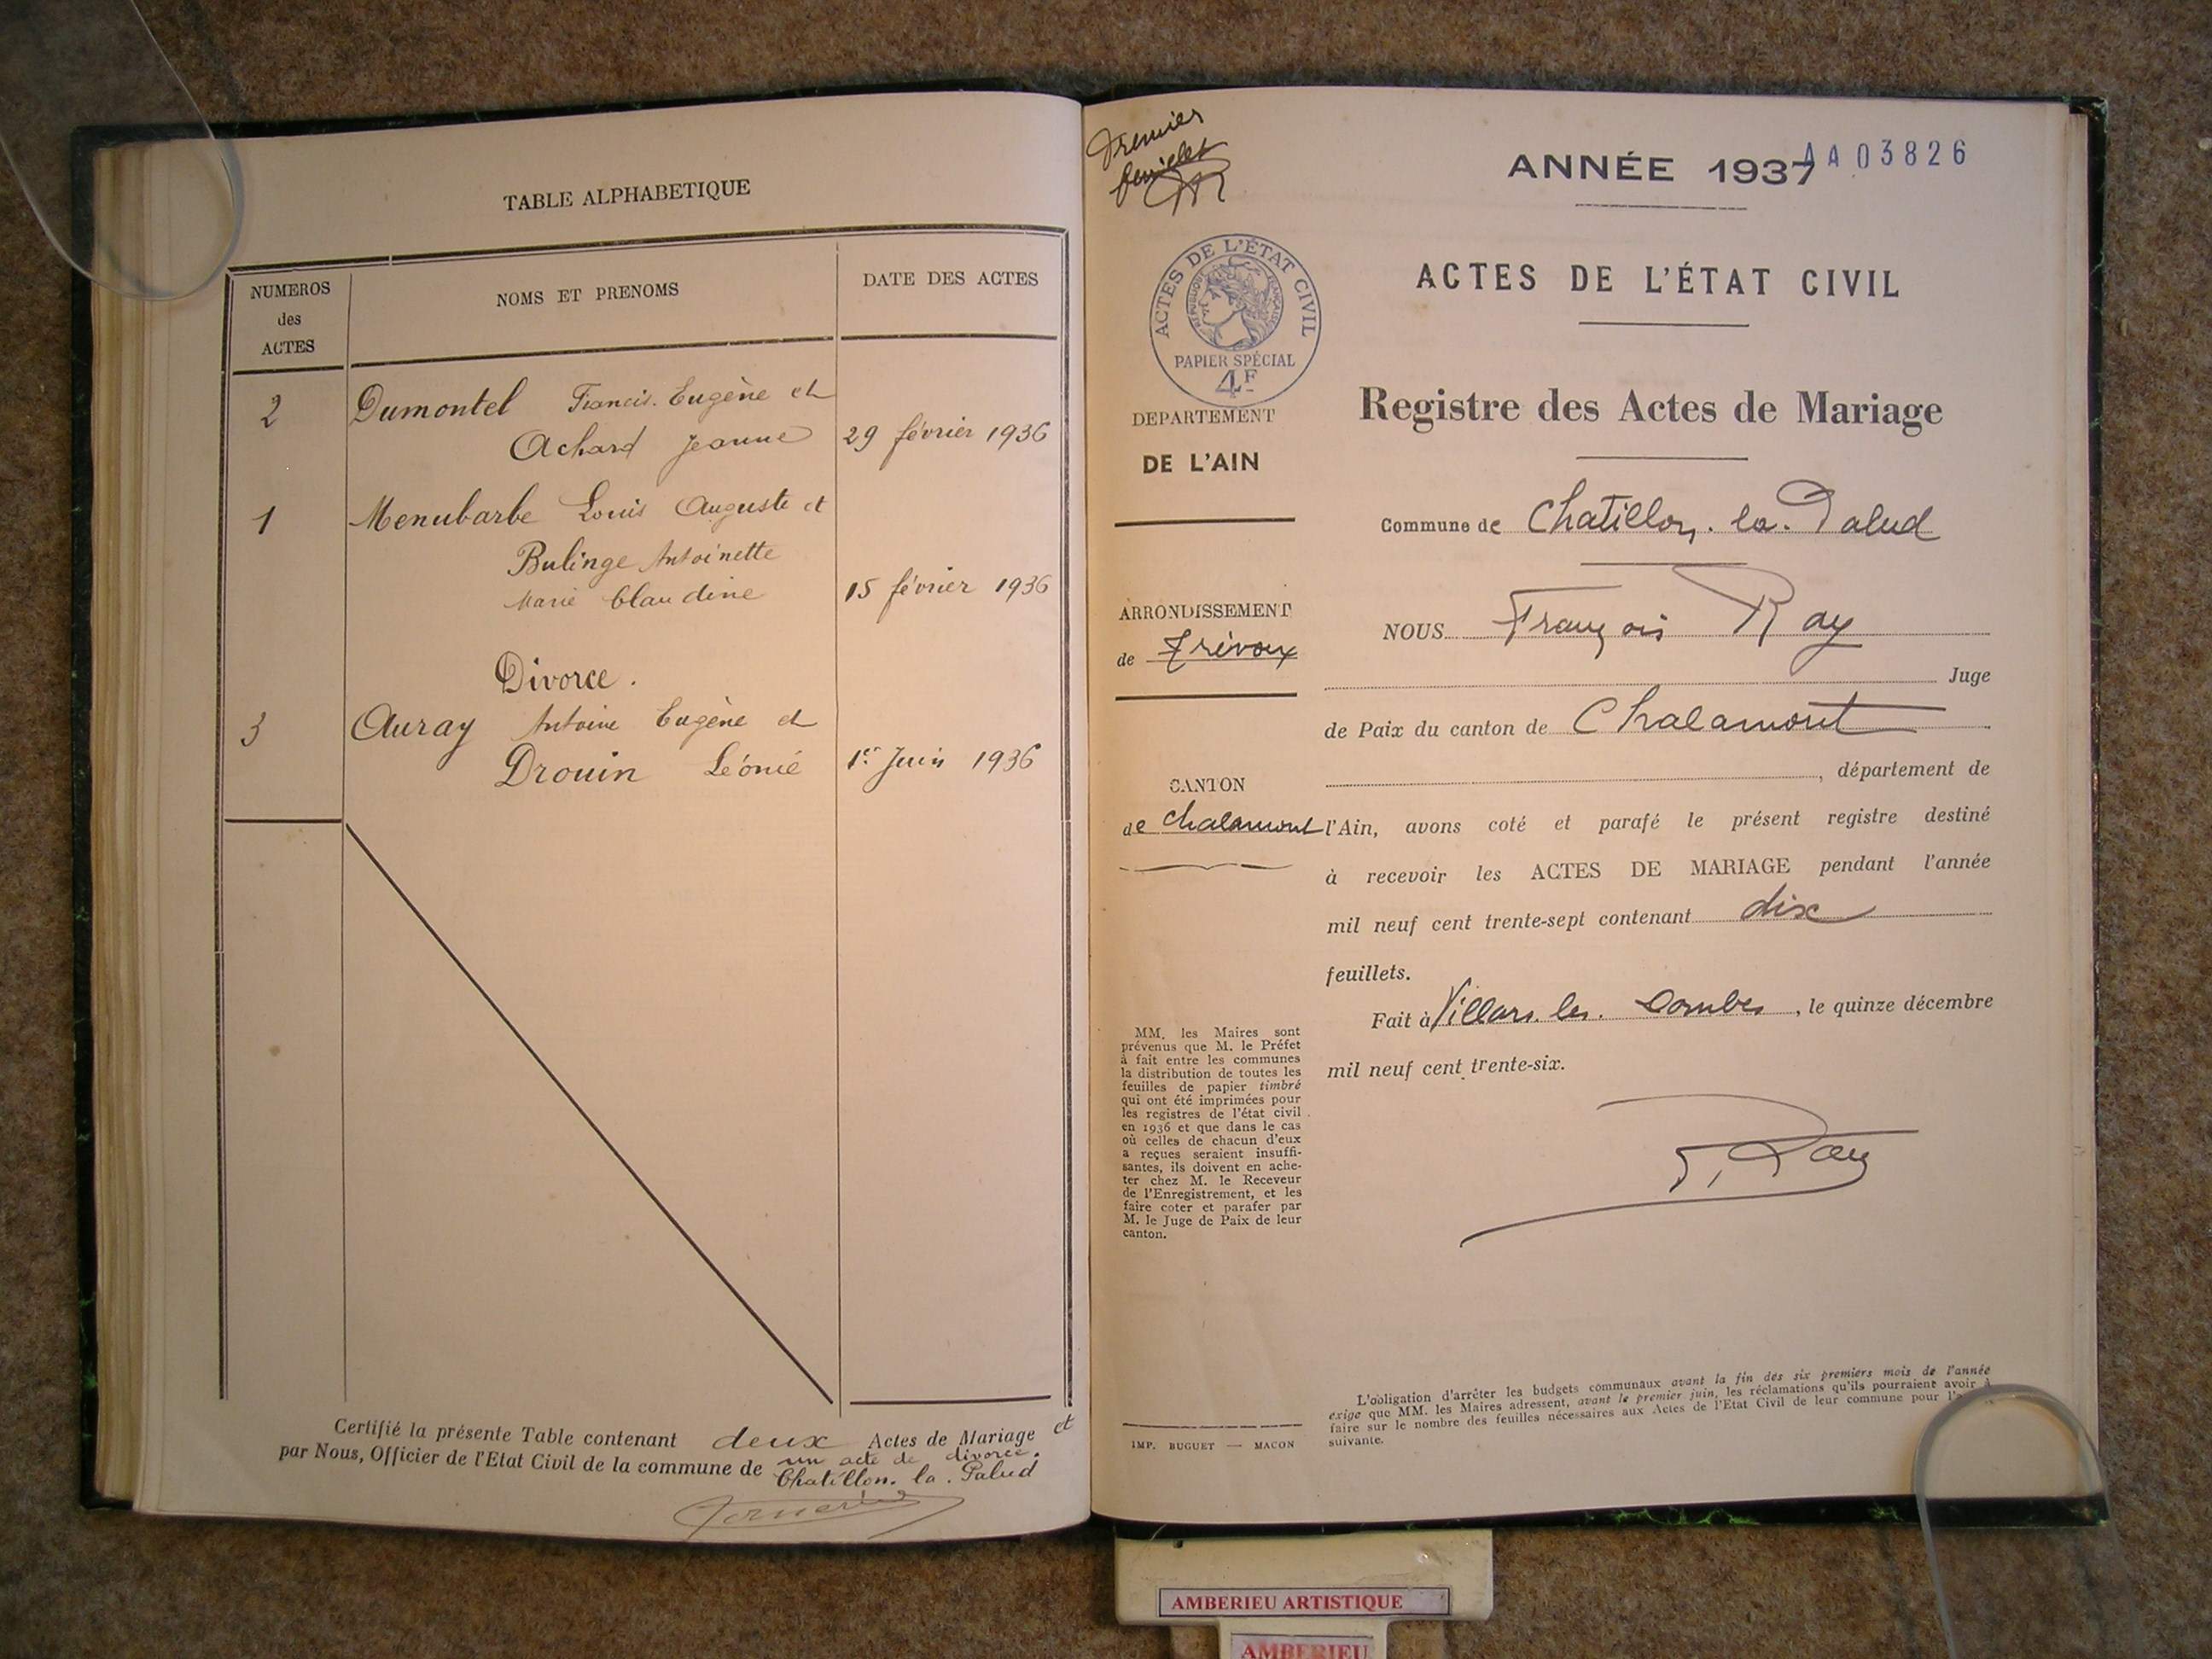 TABLE ALPHABETIQUE
NUMEROS
des
ACTES
NOMS ET PRENOMS
DATE DES ACTES
2 Dumontel Francis. Eugène et
Achard Jeanne 29 février 1936
1 Menubarbe Louis Auguste et
Bulinge Antoinette
Marie Claudine 15 février 1936
Divorce.
3 Auray Antoine Eugène et
Drouin Léonie 1er Juin 1936
Certifié la présente Table contenant deux Actes de Mariage et
un acte de divorce.
par Nous, Officier de l'Etat Civil de la commune de Chatillon. la. Palud
Premier
feuillet
ANNÉE 1937
AA03826
ACTES DE L'ÉTAT CIVIL
RÉPUBLIQUE FRANÇAISE
PAPIER SPÉCIAL
4F
ACTES DE L'ÉTAT CIVIL
Registre des Actes de Mariage
DEPARTEMENT
DE L'AIN
Commune de Chatillon. la. Palud
ARRONDISSEMENT
de Trévoux
NOUS François Ray
Juge
de Paix du canton de Chalamont
, département de
CANTON
de Chalamont
l'Ain, avons coté et parafé le présent registre destiné
à recevoir les ACTES DE MARIAGE pendant l'année
mil neuf cent trente-sept contenant dix
feuillets.
Fait à Villars. les. Dombes, le quinze décembre
mil neuf cent trente-six.
F. Ray
MM. les Maires sont
prévenus que M. le Préfet
à fait entre les communes
la distribution de toutes les
feuilles de papier timbré
qui ont été imprimées pour
les registres de l'état civil
en 1936 et que dans le cas
où celles de chacun d'eux
a reçues seraient insuffi-
santes, ils doivent en ache-
ter chez M. le Receveur
de l'Enregistrement, et les
faire coter et parafer par
M. le Juge de Paix de leur
canton.
IMP. BUGUET — MACON
L'obligation d'arrêter les budgets communaux avant la fin des six premiers mois de l'année
exige que MM. les Maires adressent, avant le premier juin, les réclamations qu'ils pourraient avoir à
faire sur le nombre des feuilles nécessaires aux Actes de l'Etat Civil de leur commune pour
suivante.
AMBERIEU ARTISTIQUE
AMBERIEU